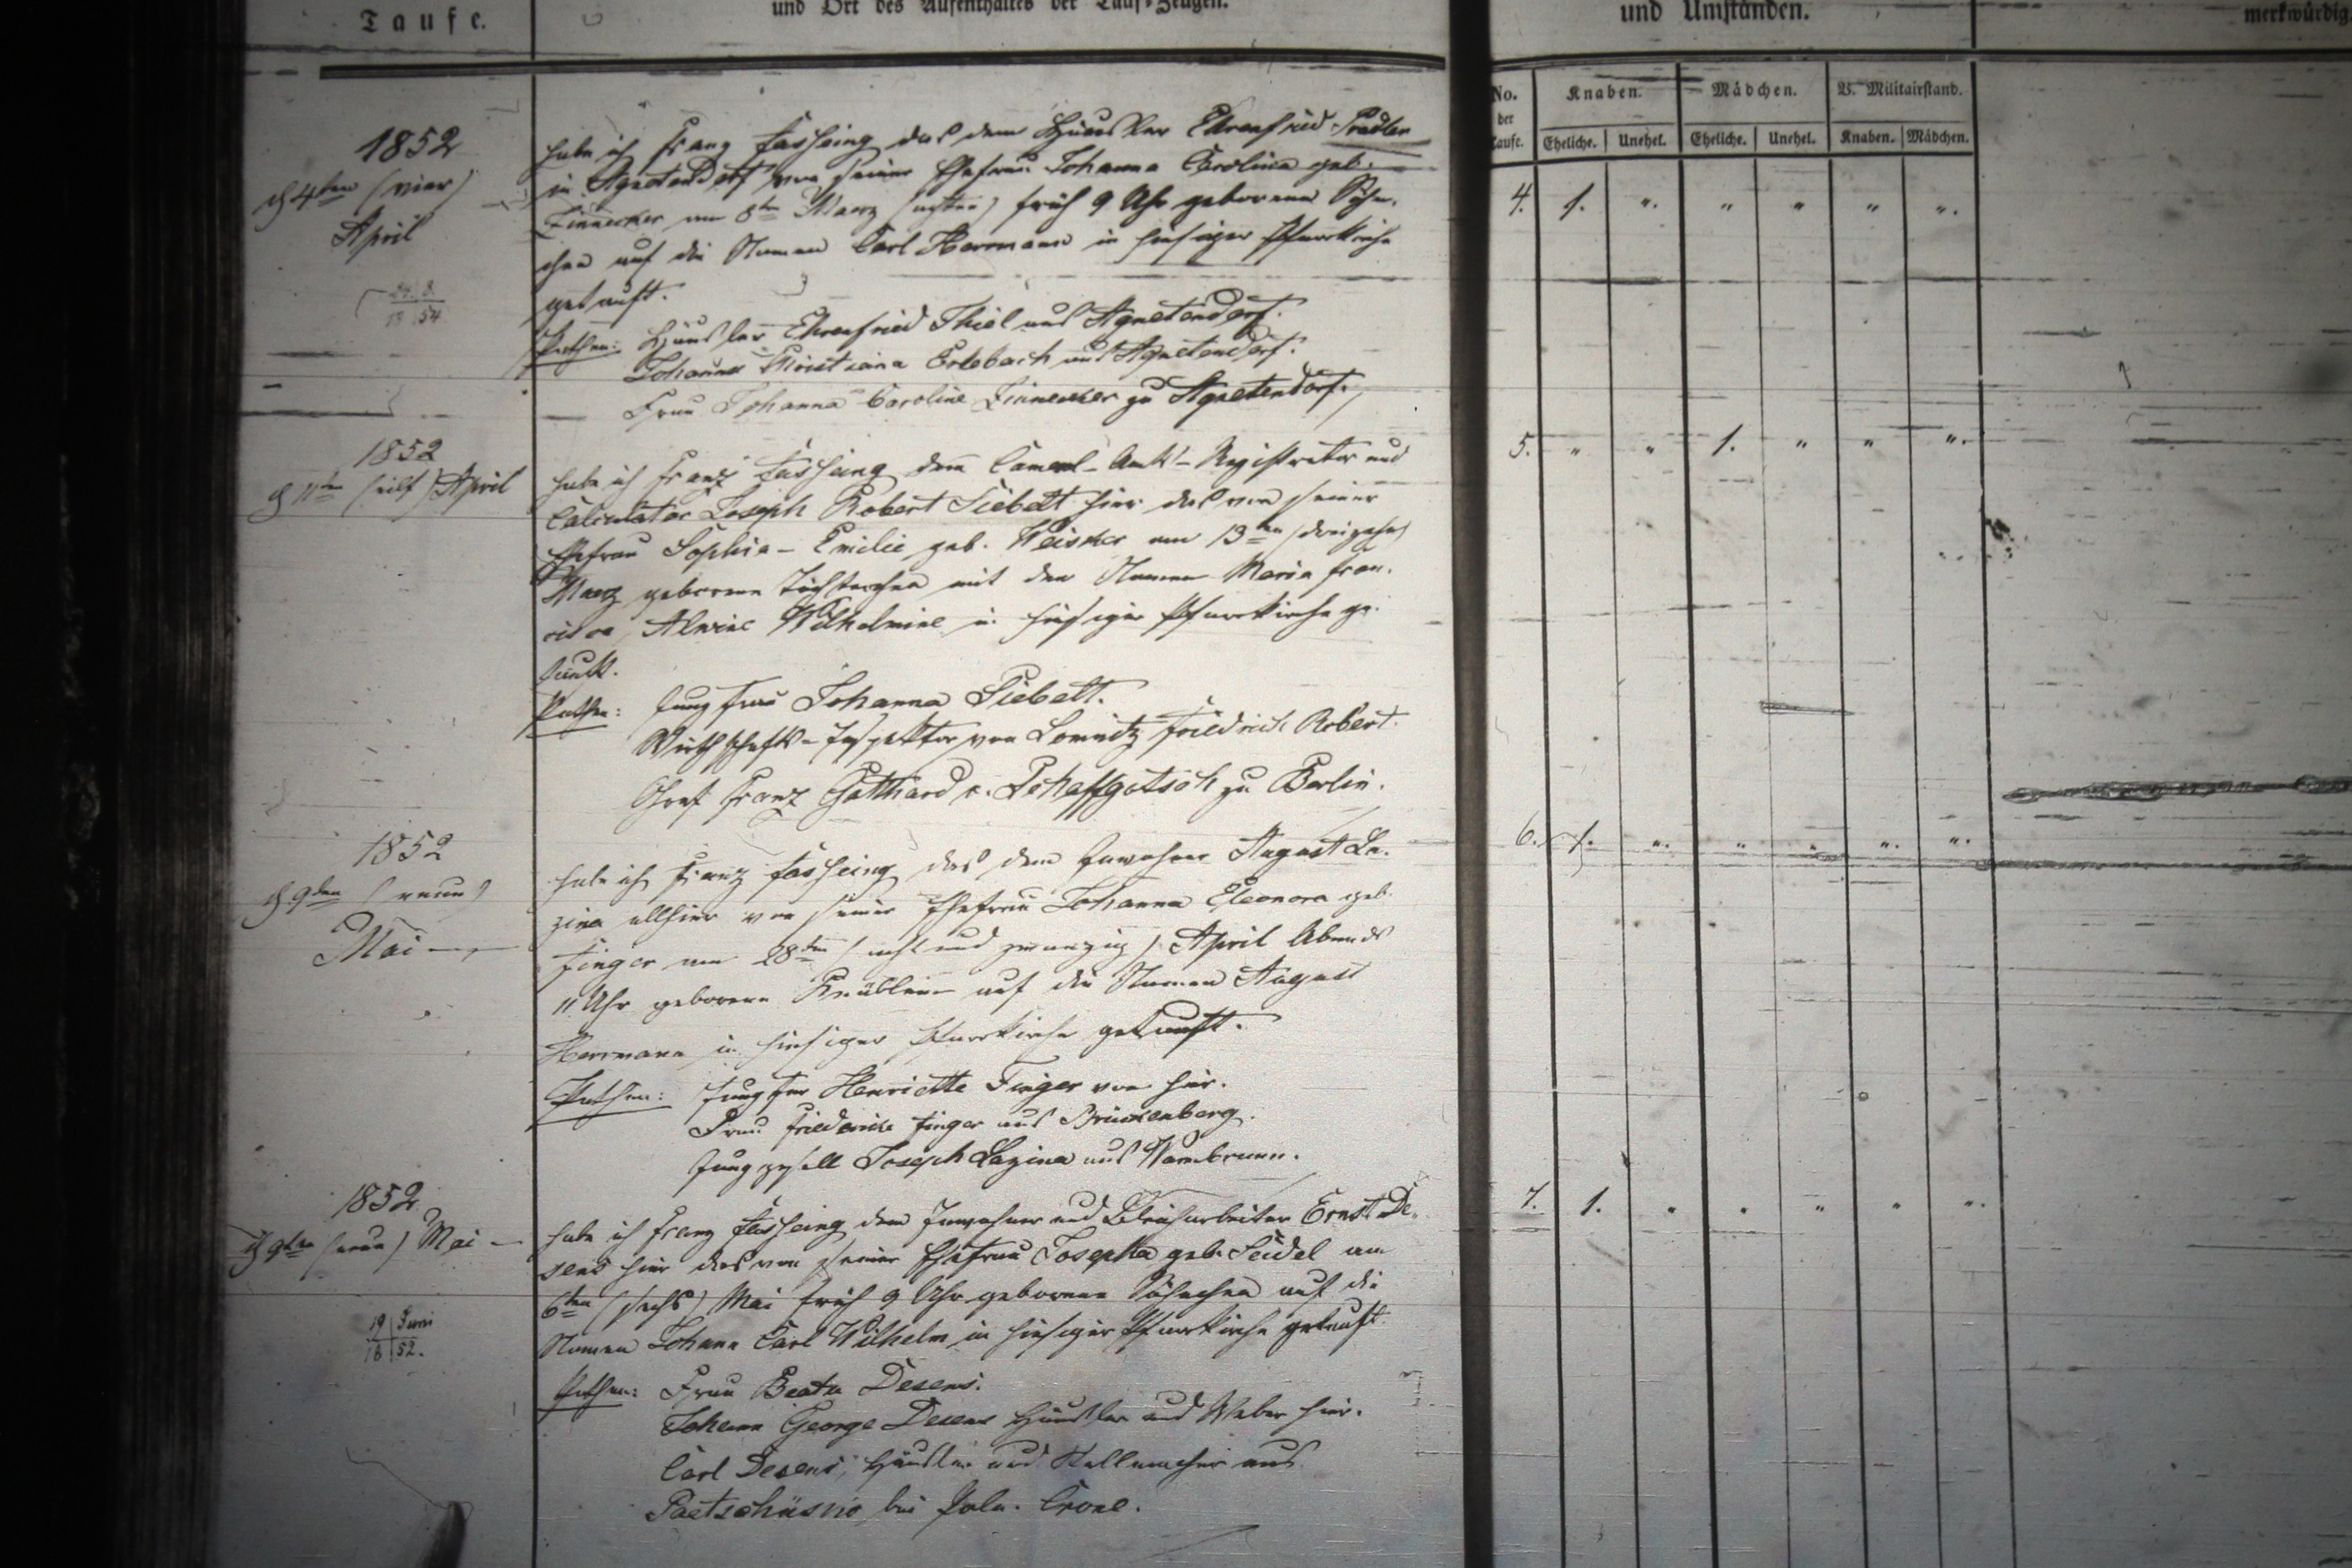 Taufe.
und Ort des Aufenthaltes der Tauf-Zeugen.
und Umständen.
merkwürdig
No. der Taufe.
Knaben.
Mädchen.
B. Militairstand.
Eheliche. Unehel. Eheliche. Unehel. Knaben. Mädchen.
1852
d 4ten (vier)
April
habe ich Franz das dem Häusler Ehrenfried
in Agnetendorf von seiner Ehefrau Johanna Carolina geb.
Linnecker am 8ten Maerz (achten) früh 9 Uhr geborene Söhn-
chen auf die Namen Carl Herrmann in hiesiger Pfarrkirche
getauft.
Pathen: Häusler Ehrenfried Thiel aus Agnetendorf.
Johanna Christiana Erlebach aus Agnetendorf.
Frau Johanna Caroline Linnecker zu Agnetendorf.
4. 1. " " " " "
1852
d 11te (eilf) April
habe ich Franz dem Cameral-Amts-Registrator und
Calculator Joseph Robert Siebelt hier das von seiner
Ehefrau Sophie-Emilie geb. am 13ten (dreizehn)
Maerz geborene Töchterchen mit den Namen Maria Fran-
cisca, Alwine Wilhelmine in hiesiger Pfarrkirche ge-
tauft.
Pathen: Jungfrau Johanna Siebelt.
Wirthschafts-Inspektor von Lomnitz Friedrich Robert.
Graf Franz Gotthard v. Schaffgotsch zu Berlin.
5. " " 1. " " "
1852
d 9ten (neun)
Mai
habe ich Franz das dem Inwohner August La-
zina allhier von seiner Ehefrau Johanna Eleonora geb.
Finger am 28ten (acht und zwanzig) April Abends
11 Uhr geborene Knäblein auf die Namen August
Herrmann in hiesiger Pfarrkirche getauft.
Pathen: Jungfer Henriette Finger von hier.
Frau Friederike Finger aus Brückenberg.
Junggesell Joseph Lazina aus Warmbrunn.
6. 1. " " " " "
1852
d 9ten (neun) Mai
19 Juni
18 52.
habe ich Franz dem Inwohner und Bleicharbeiter Ernst De-
sens hier das von seiner Ehefrau Josepha geb. Seidel am
6ten (sechs) Mai früh 9 Uhr geborene Söhnchen auf die
Namen Johann Carl Wilhelm in hiesiger Pfarrkirche getauft.
Pathen: Frau Beata Desens.
Johann George Desens Häusler und Weber hier.
Carl Desens, Häusler und Stellmacher aus
bei Poln. Crone.
7. 1. " " " " "